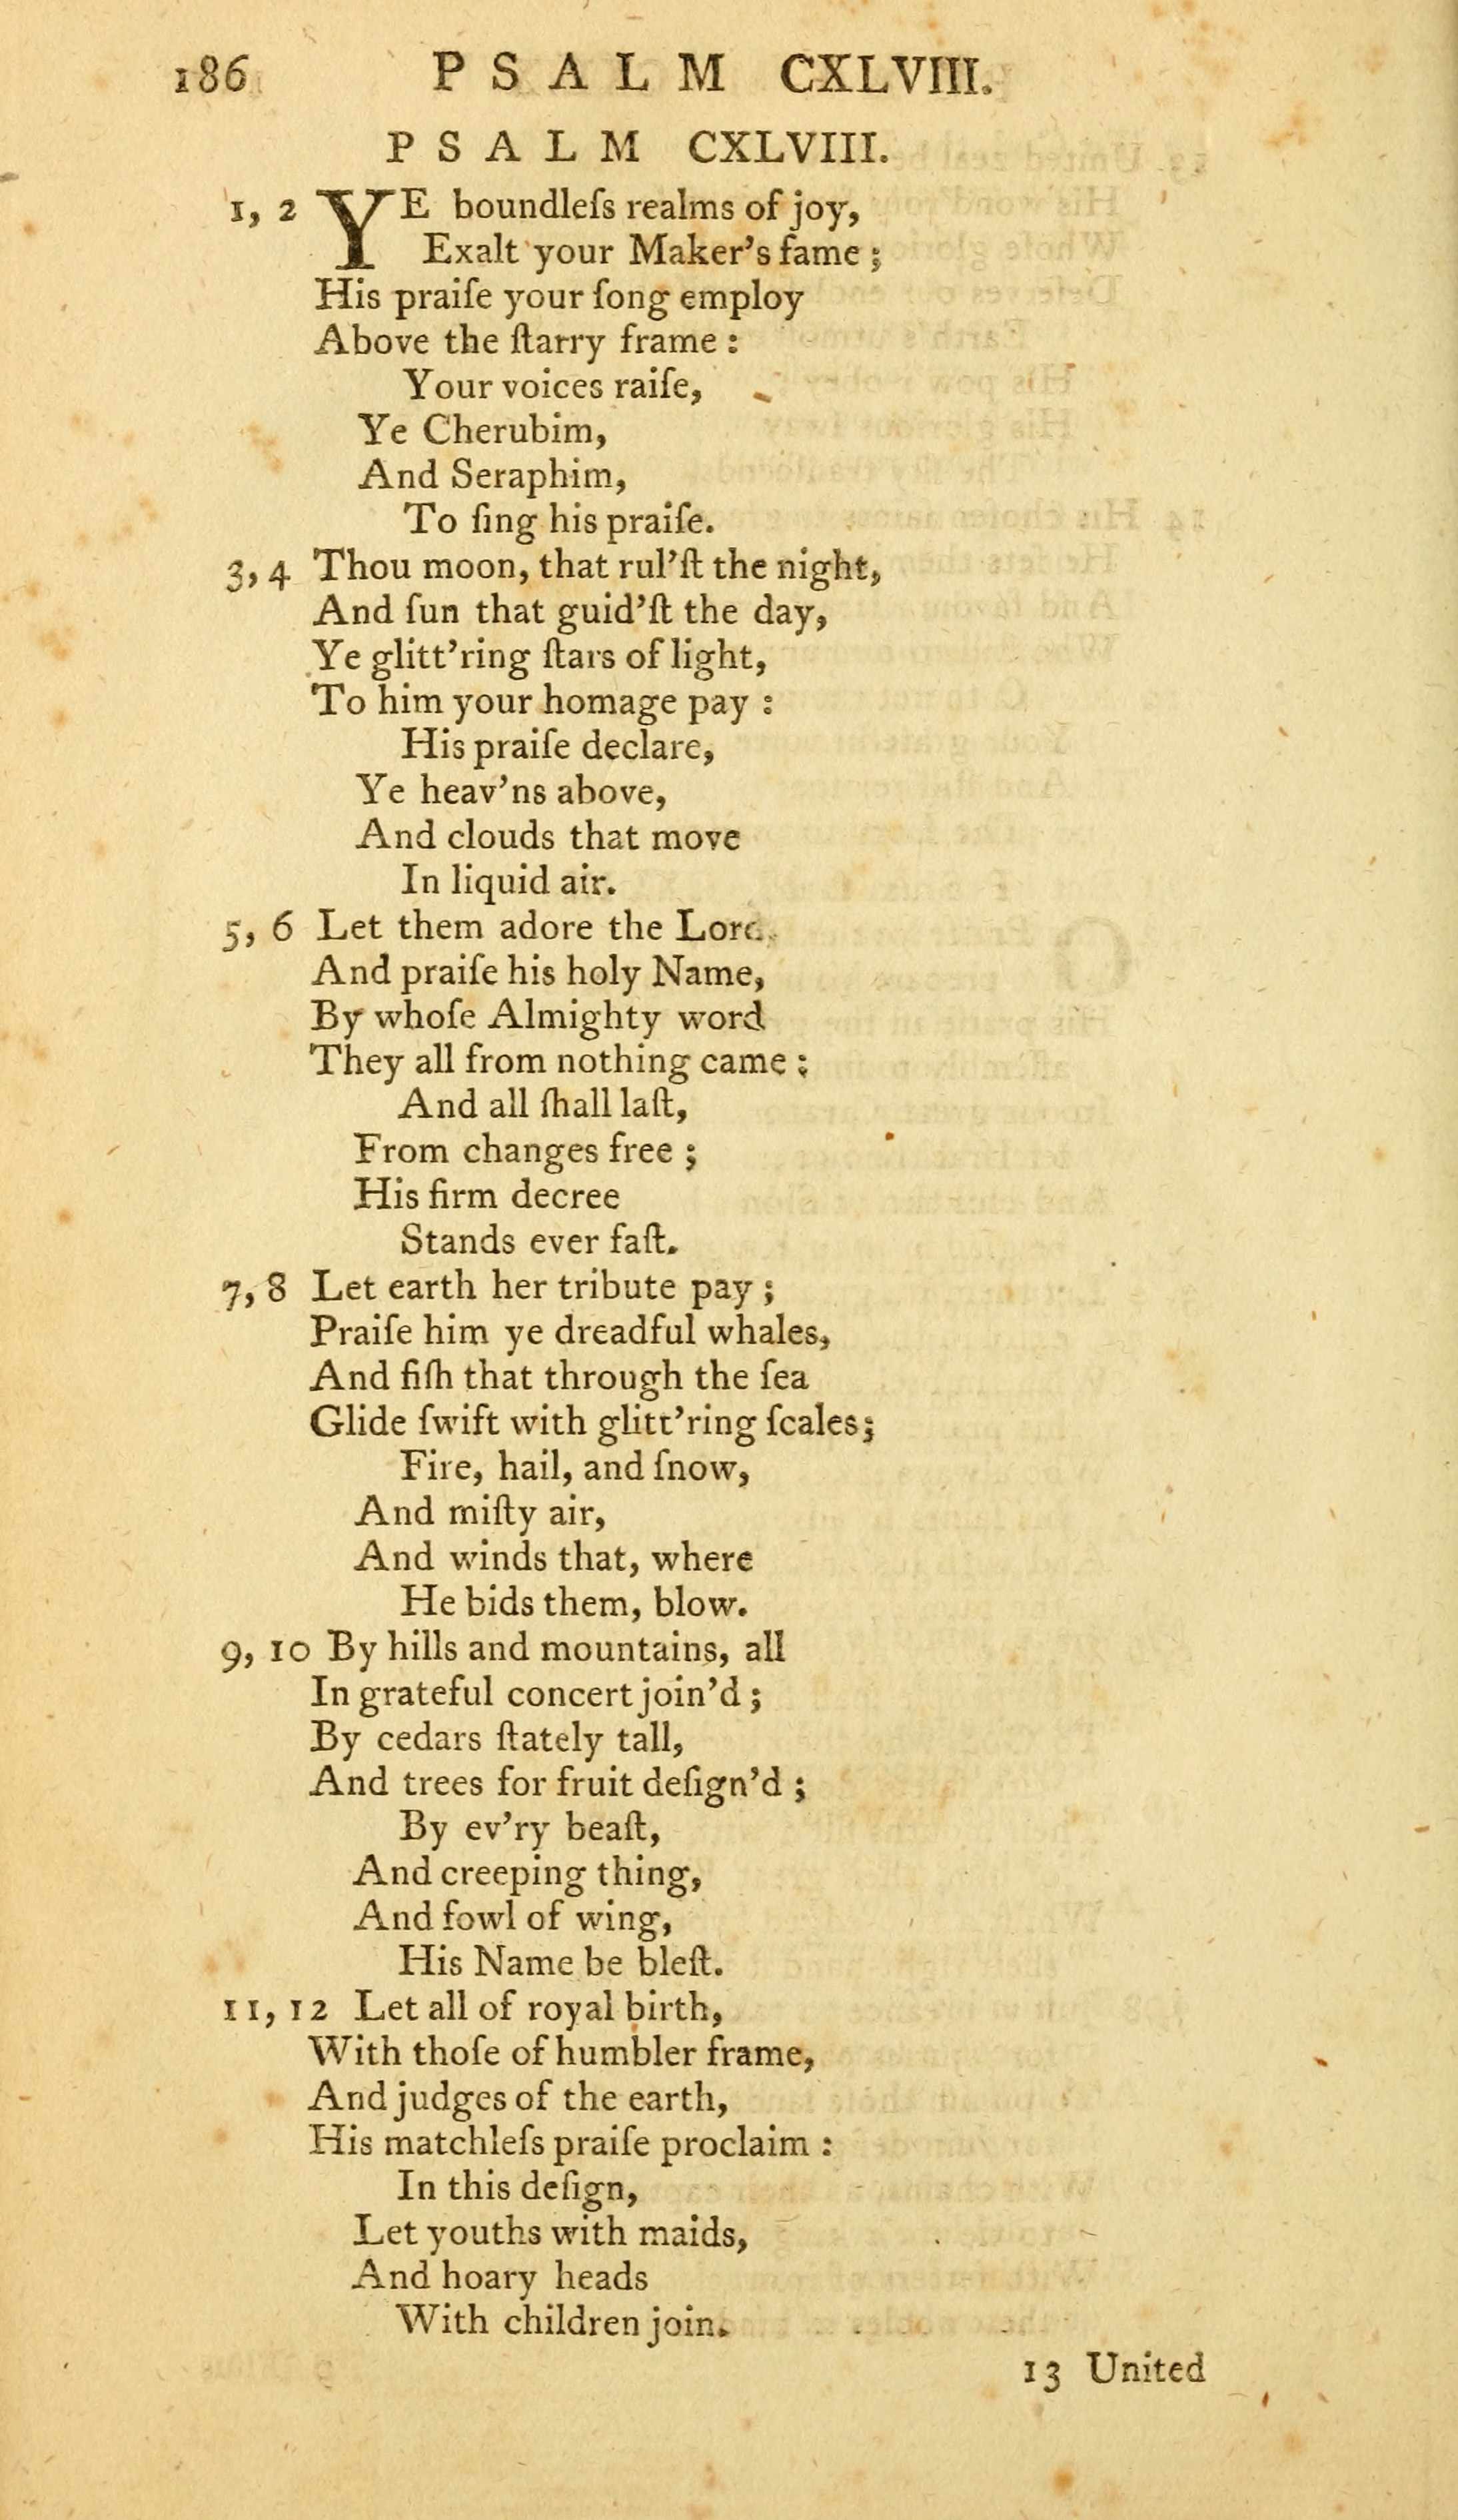 186 PSALM CXLVIII.
PSALM CXLVIII.
1, 2 YE boundleſs realms of joy,
Exalt your Maker's fame ;
His praiſe your ſong employ
Above the ſtarry frame :
Your voices raiſe,
Ye Cherubim,
And Seraphim,
To ſing his praiſe.
3, 4 Thou moon, that rul'ſt the night,
And ſun that guid'ſt the day,
Ye glitt'ring ſtars of light,
To him your homage pay :
His praiſe declare,
Ye heav'ns above,
And clouds that move
In liquid air.
5, 6 Let them adore the Lord
And praiſe his holy Name,
By whoſe Almighty word
They all from nothing came ;
And all ſhall laſt,
From changes free ;
His firm decree
Stands ever faſt.
7, 8 Let earth her tribute pay ;
Praiſe him ye dreadful whales,
And fiſh that through the ſea
Glide ſwift with glitt'ring ſcales;
Fire, hail, and ſnow,
And miſty air,
And winds that, where
He bids them, blow.
9, 10 By hills and mountains, all
In grateful concert join'd ;
By cedars ſtately tall,
And trees for fruit deſign'd ;
By ev'ry beaſt,
And creeping thing,
And fowl of wing,
His Name be bleſt.
11, 12 Let all of royal birth,
With thoſe of humbler frame,
And judges of the earth,
His matchleſs praiſe proclaim :
In this deſign,
Let youths with maids,
And hoary heads
With children join.
13 United